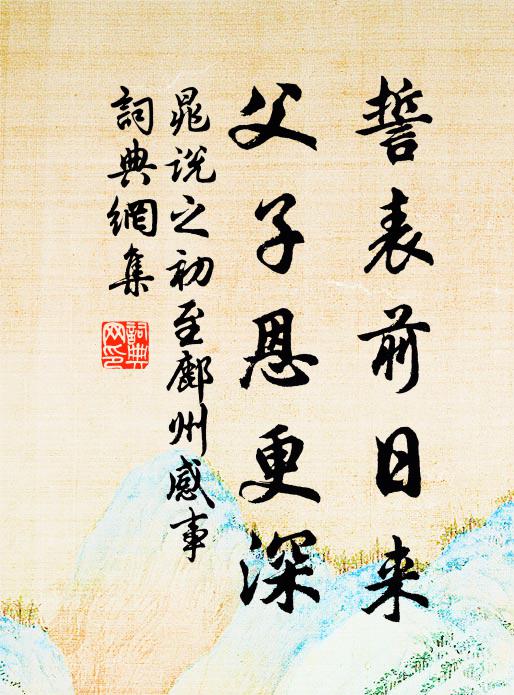 誓表前日来
父子恩更深
晁说之初至鄜州感事
詞典網集
詞典
网印